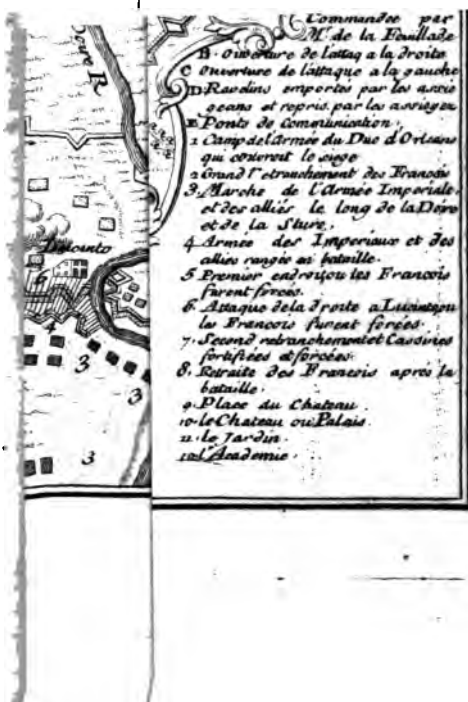 Doire R
Lucinto
6
4
3
3
3
Commandée par
Mr. de la Feuillade
B. Ouverture de l'attaq a la droite
C Ouverture de l'attaque a la gauche
D. Ravelins emportes par les assie
geans et repris par les assiegez
E Ponts de Communication.
1 Camp de l'armée du Duc d'Orleans
qui couvroit le siege
2 Grand retranchement des Francois
3. Marche de l'Armée Imperiale
et des alliés le long de la Doire
et de la Sture.
4. Armee des Imperiaux et des
alliés rangée en bataille.
5. Premier endroit ou les Francois
furent forcés.
6. Attaque de la droite a Lucinto ou
les Francois furent forcées.
7. Second retranchement et Cassines
fortifiées et forcées.
8. Retraite des Francois apres la
bataille.
9. Place du Chateau.
10. le Chateau ou Palais.
11. le Jardin.
12. l'Academie.